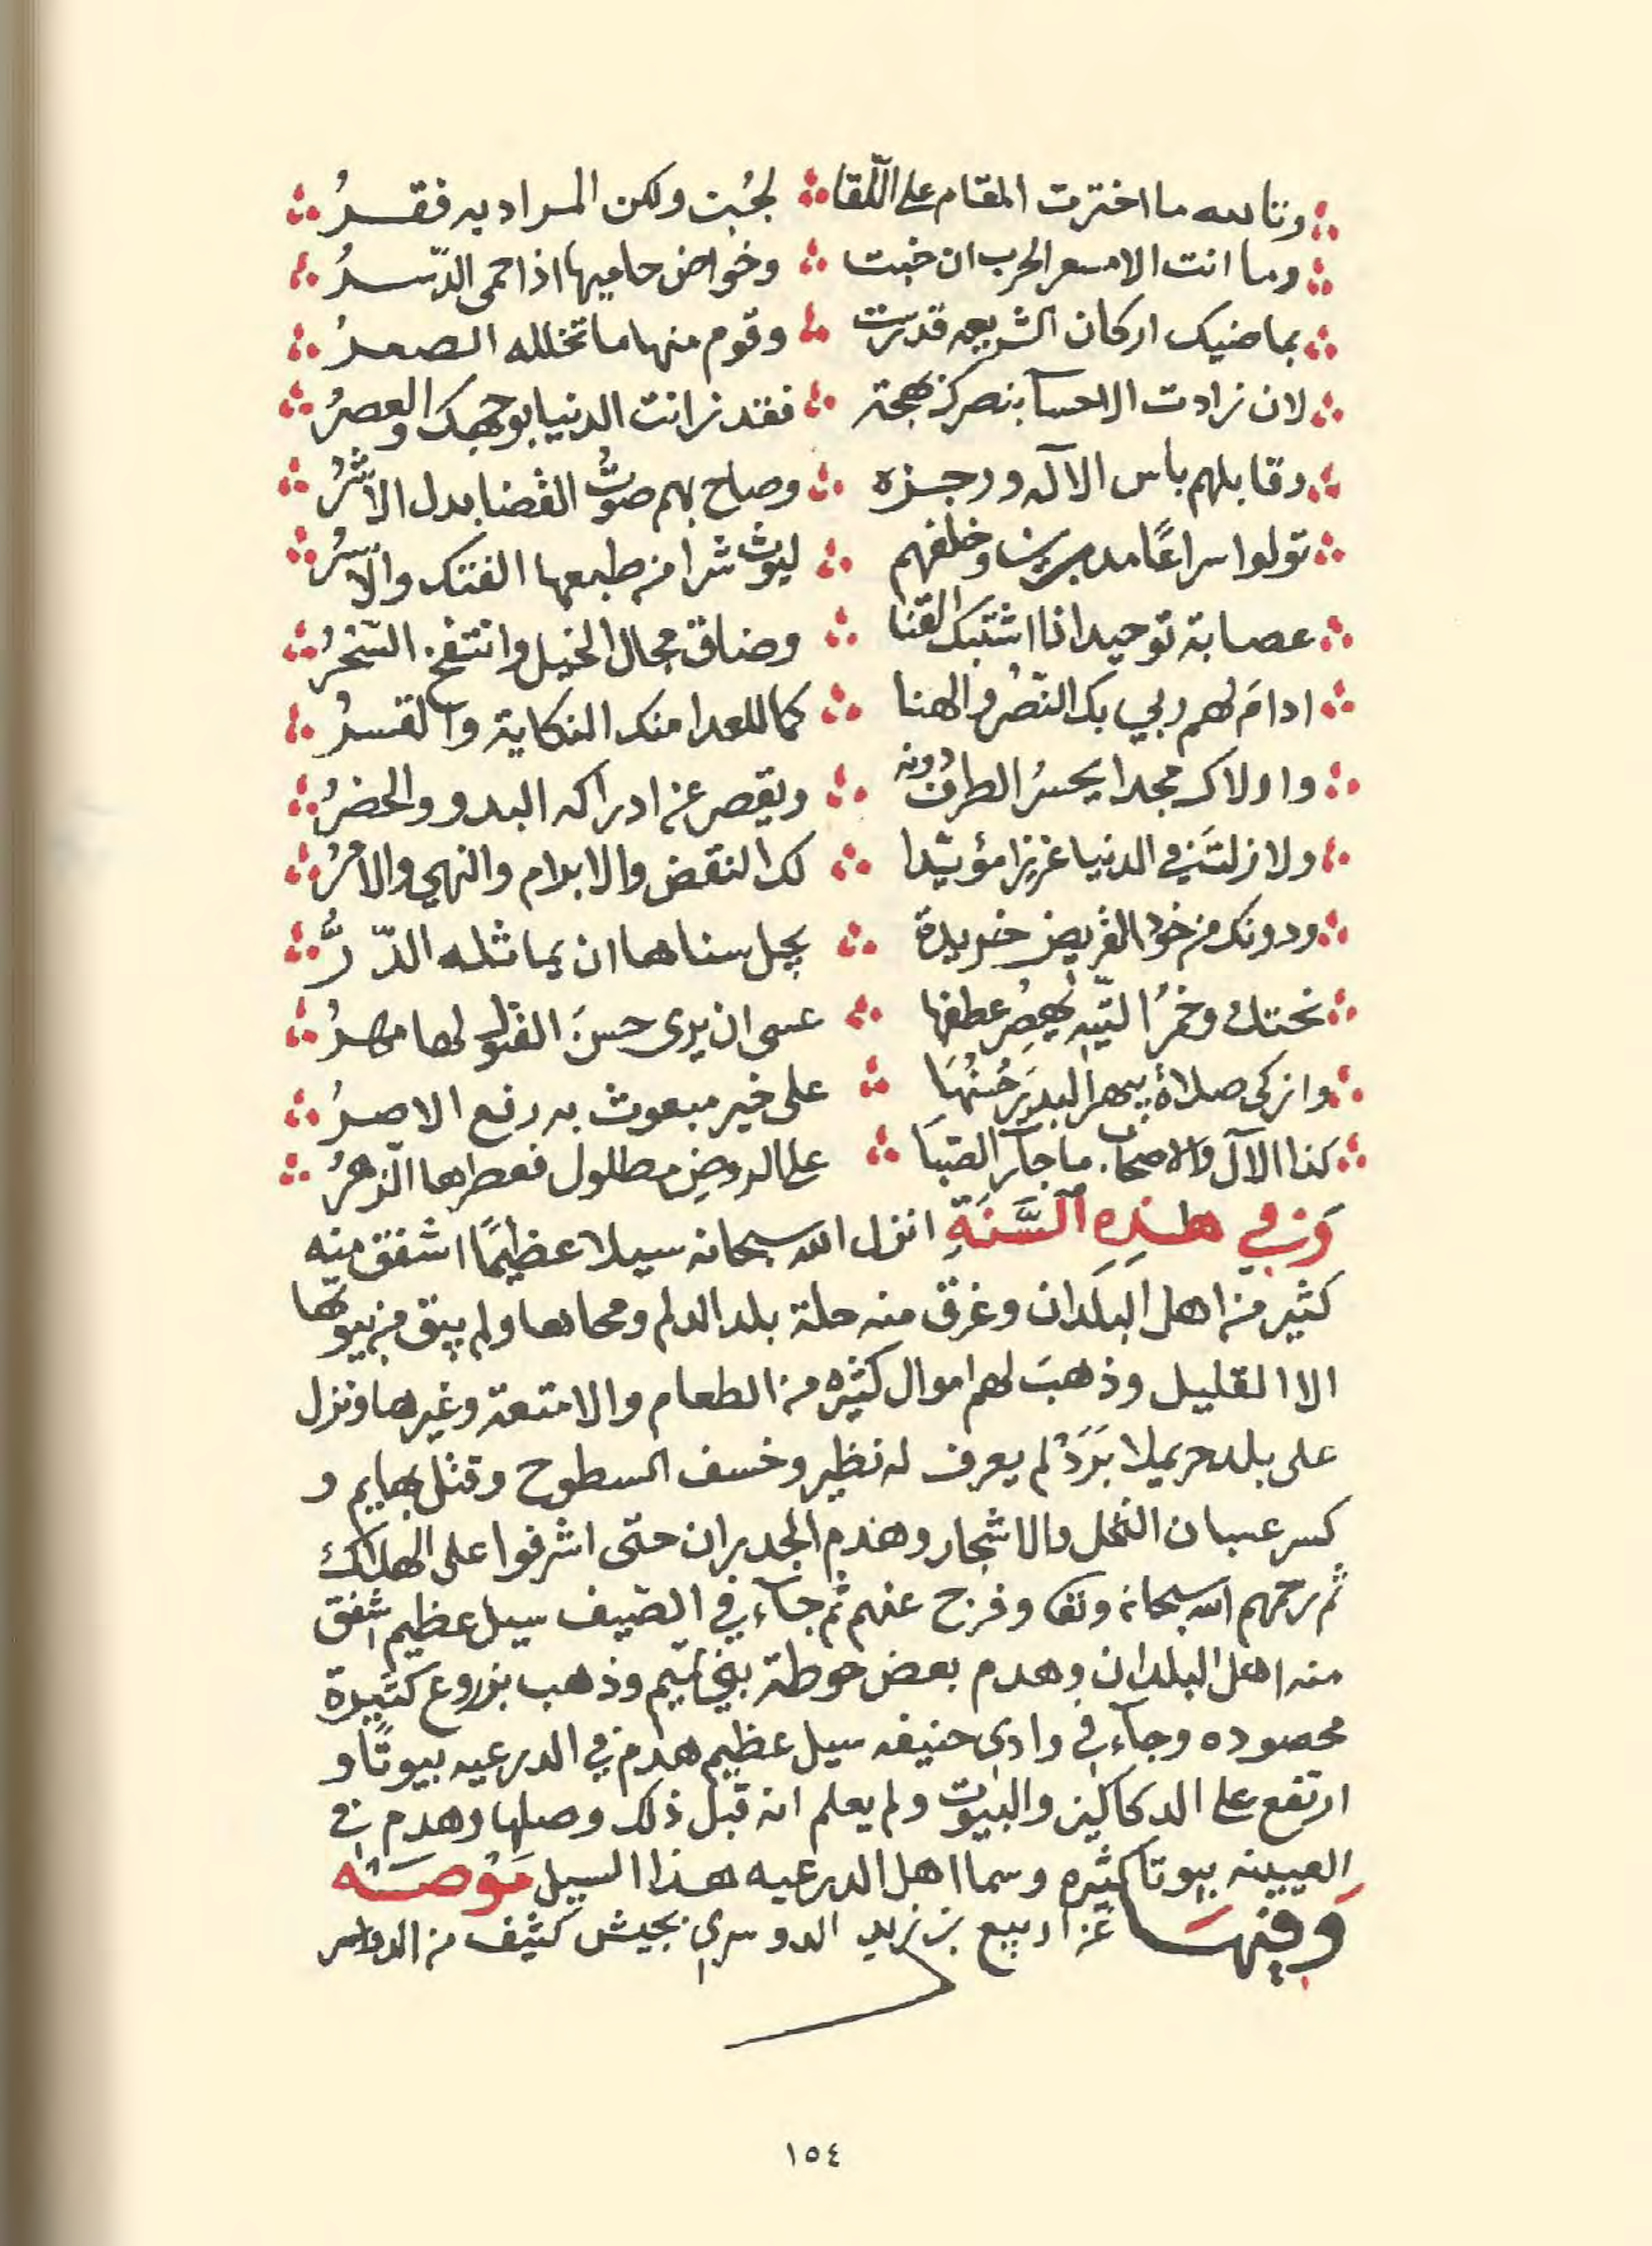 وتالله ما اخترت المقام على اللقا لجُبت ولكن المراد به فقرُ
وما انت الا مسعر الحرب ان خبت وخواض حاميها اذا حمى الدّسرُ
بماضيك اركان الشريعه قد رست وقوم منها ما تخلله الصعرُ
لان زادت الاحسآ بنصرك بهجة فقد زانت الدنيا بوجهك والعصرُ
وقابلهم باس الاله ورجزه وصاح بهم صوتُ القضا بدل الأشرُ
تولوا سراعًا مدبرين وخلفهم ليوث شرا من طبعها الفتك والأسرُ
عصابة توحيد اذا اشتبك القنا وضاق مجال الخيل وانتفخ السَّحْرُ
ادامَ لهم ربي بك النّصرُ والهنا كما للعدا منك النكاية والقسرُ
واولاك مجدا يحسرُ الطرف دونه ويقصر عن ادراكه البدو والحضرُ
ولا زلتَ في الدنيا عزيزا مؤيّدا لك النقض والابرام والنهي والامرُ
ودونك من خود القريض خريدة يجل سناها ان يماثله الدّرُّ
نحتك وخمرُ التّيهِ يهصرُ عطفها عسى ان يرى حسنَ القبول لها مهرُ
وازكى صلاةٍ يبهر البدرَ حُسْنُهَا على خير مبعوث به رفع الاصرُ
كذا الآل والاصحاب ما جآر الصّبَا على الروضِ مطلول فعطرها الزهرُ
وَفِي هَذِهِ ٱلسَّنَةِ انزل الله سبحانه سيلا عظيمًا اشفق منه
كثير من اهل البلدان وغرق منه حلة بلد الدلم ومحاها ولم يبق من بيوتها
الا القليل وذهبَ لهم اموال كثيره من الطعام والامتعة وغيرها ونزل
على بلد حريملا بَرَدْ لم يعرف له نظير وخسف السطوح وقتل بهايم و
كسر عسبان النخل والاشجار وهدم الجدران حتى اشرفوا على الهلاك
ثم رحمهم الله سبحانه وتعا وفرج عنهم ثم جآء في الصّيف سيل عظيم اشفق
منه اهل البلدان وهدم بعض حوطة بني تميم وذهب بزروع كثيرة
محصوده وجآء في وادي حنيفه سيل عظيم هدم في الدرعيه بيوتًا و
ارتفع على الدكاكين والبيوت ولم يعلم انه قبل ذلك وصلها وهدم في
العيينه بيوتا كثيره وسما اهل الدرعيه هذا السيل مَوْصَه
وَفِيْهَا غزا ربيع بن زيد الدوسري بجيش كثيف من الدواسر
١٥٤